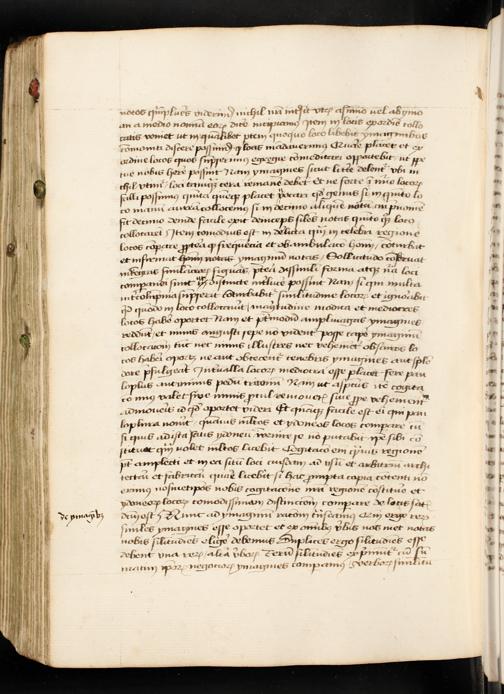 notos videri nichil utrum a summo vel ab ymo
an a medio nominum eorum dicere Item in locis ex ordine collo
catis eveniet ut in quamlibet partem quoque loco libebit ymaginibus
commoniti dicere possimus locis Quare placet et ex
ordine locos quos egregie commeditari oportebit ut perpe
tue nobis herere possint Nam ymagines sicut littere delentur ubi ni
chil utimur loci tamquam cera remanere debent Et ne forte in numero locorum
falli possimus quintum quemque placet notari quod genus si in quinto lo
co manum auream collocemus si in decimo aliquem notum cui prenomen
sit decimo deinde facile erit deinceps similes notas quinto quoque loco
collocare Item commodius est in derelicta quam in celebri regione
locos comparare propterea quod frequencia et obambulacio hominum conturbat
et infirmat notas Sollicitudo conservat
integras similitudinum figuras preterea dissimili forma atque natura loci
comparandi sunt ut distincte interluce possint Nam si qui multa
intercolumpnia sumpserit conturbabitur similitudine locorum ut ignorabit
quid in quoquo loco collocaverit magnitudine modica et mediocres
locos habere oportet Nam et preter modum ampli vagas ymagines
reddunt et nimis angusti sepe non videntur posse capere ymaginum
collocacionem tum nec nimis illustres nec vehementer obscuros lo
cos habere oportet ne aut obcecentur tenebris ymagines aut splen
dore prefulgeant Intervalla locorum mediocria esse placet fere pau
lo plus aut minus pedum tricenum Nam ut aspectus ita cogita
cio minus valet sive nimis procul removeris sive prope vehementer
admoveris id quod oportet videri Et quamquam facile est ei qui pau
lo plura novit quamvis multos et ydoneos locos comparare tamen
si quis satis ydoneos invenire se non putabit ipse sibi con
stituet quam volet multos licebit Cogitacio enim quamvis regionem
potest amplecti et in ea situm loci cuiusdam ad suum et arbitrium archi
tectari et fabricari quare licebit si hac prompta copia contenti non
erimus nosmetipsos nobis cogitacione nostra regionem constituere et
ydoneorum locorum commodissimam distinctionem comparare de locis satis
dictum est Nunc ad ymaginum racionem transeamus Quoniam ergo rerum
similes ymagines esse oportet et ex omnibus verbis nos met notas
nobis similitudines eligere debemus Duplices ergo similitudines esse
debent una rerum altera verborum Rerum similitudines exprimuntur cum sum
matim ipsorum negociorum ymagines comparamus verborum similitu
de ymagibus